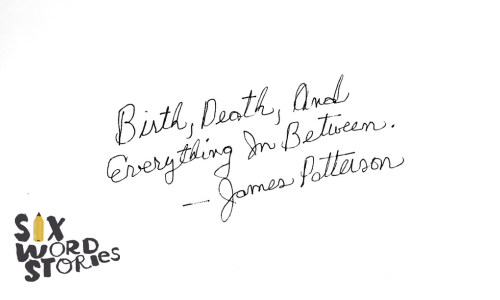 Birth, Death, And
Everything In Between.
— James Patterson
SIX
WORD
STORIES